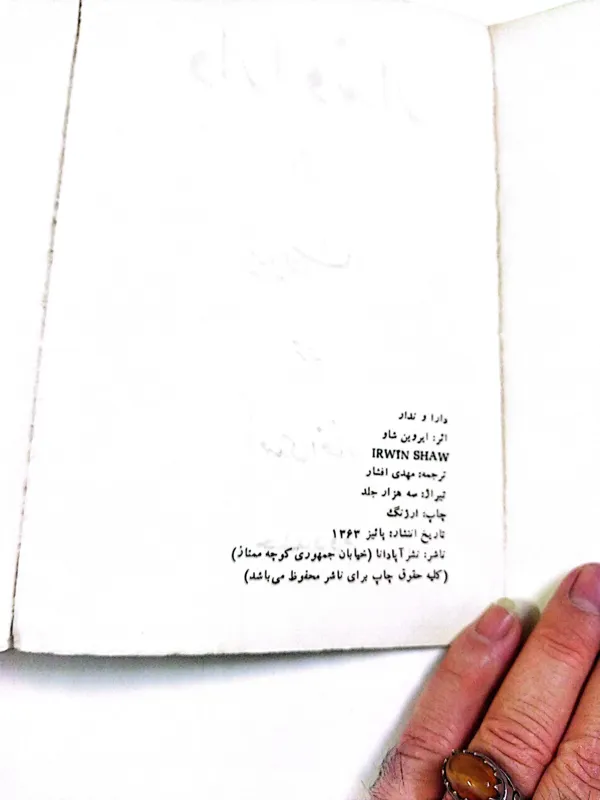 دارا و ندار
اثر: ایروین شاو
IRWIN SHAW
ترجمه: مهدی افشار
تیراژ: سه هزار جلد
چاپ: ارژنگ
تاریخ انتشار: پائیز ۱۳۶۳
ناشر: نشر آپادانا (خیابان جمهوری کوچه ممتاز)
(کلیه حقوق چاپ برای ناشر محفوظ می‌باشد)